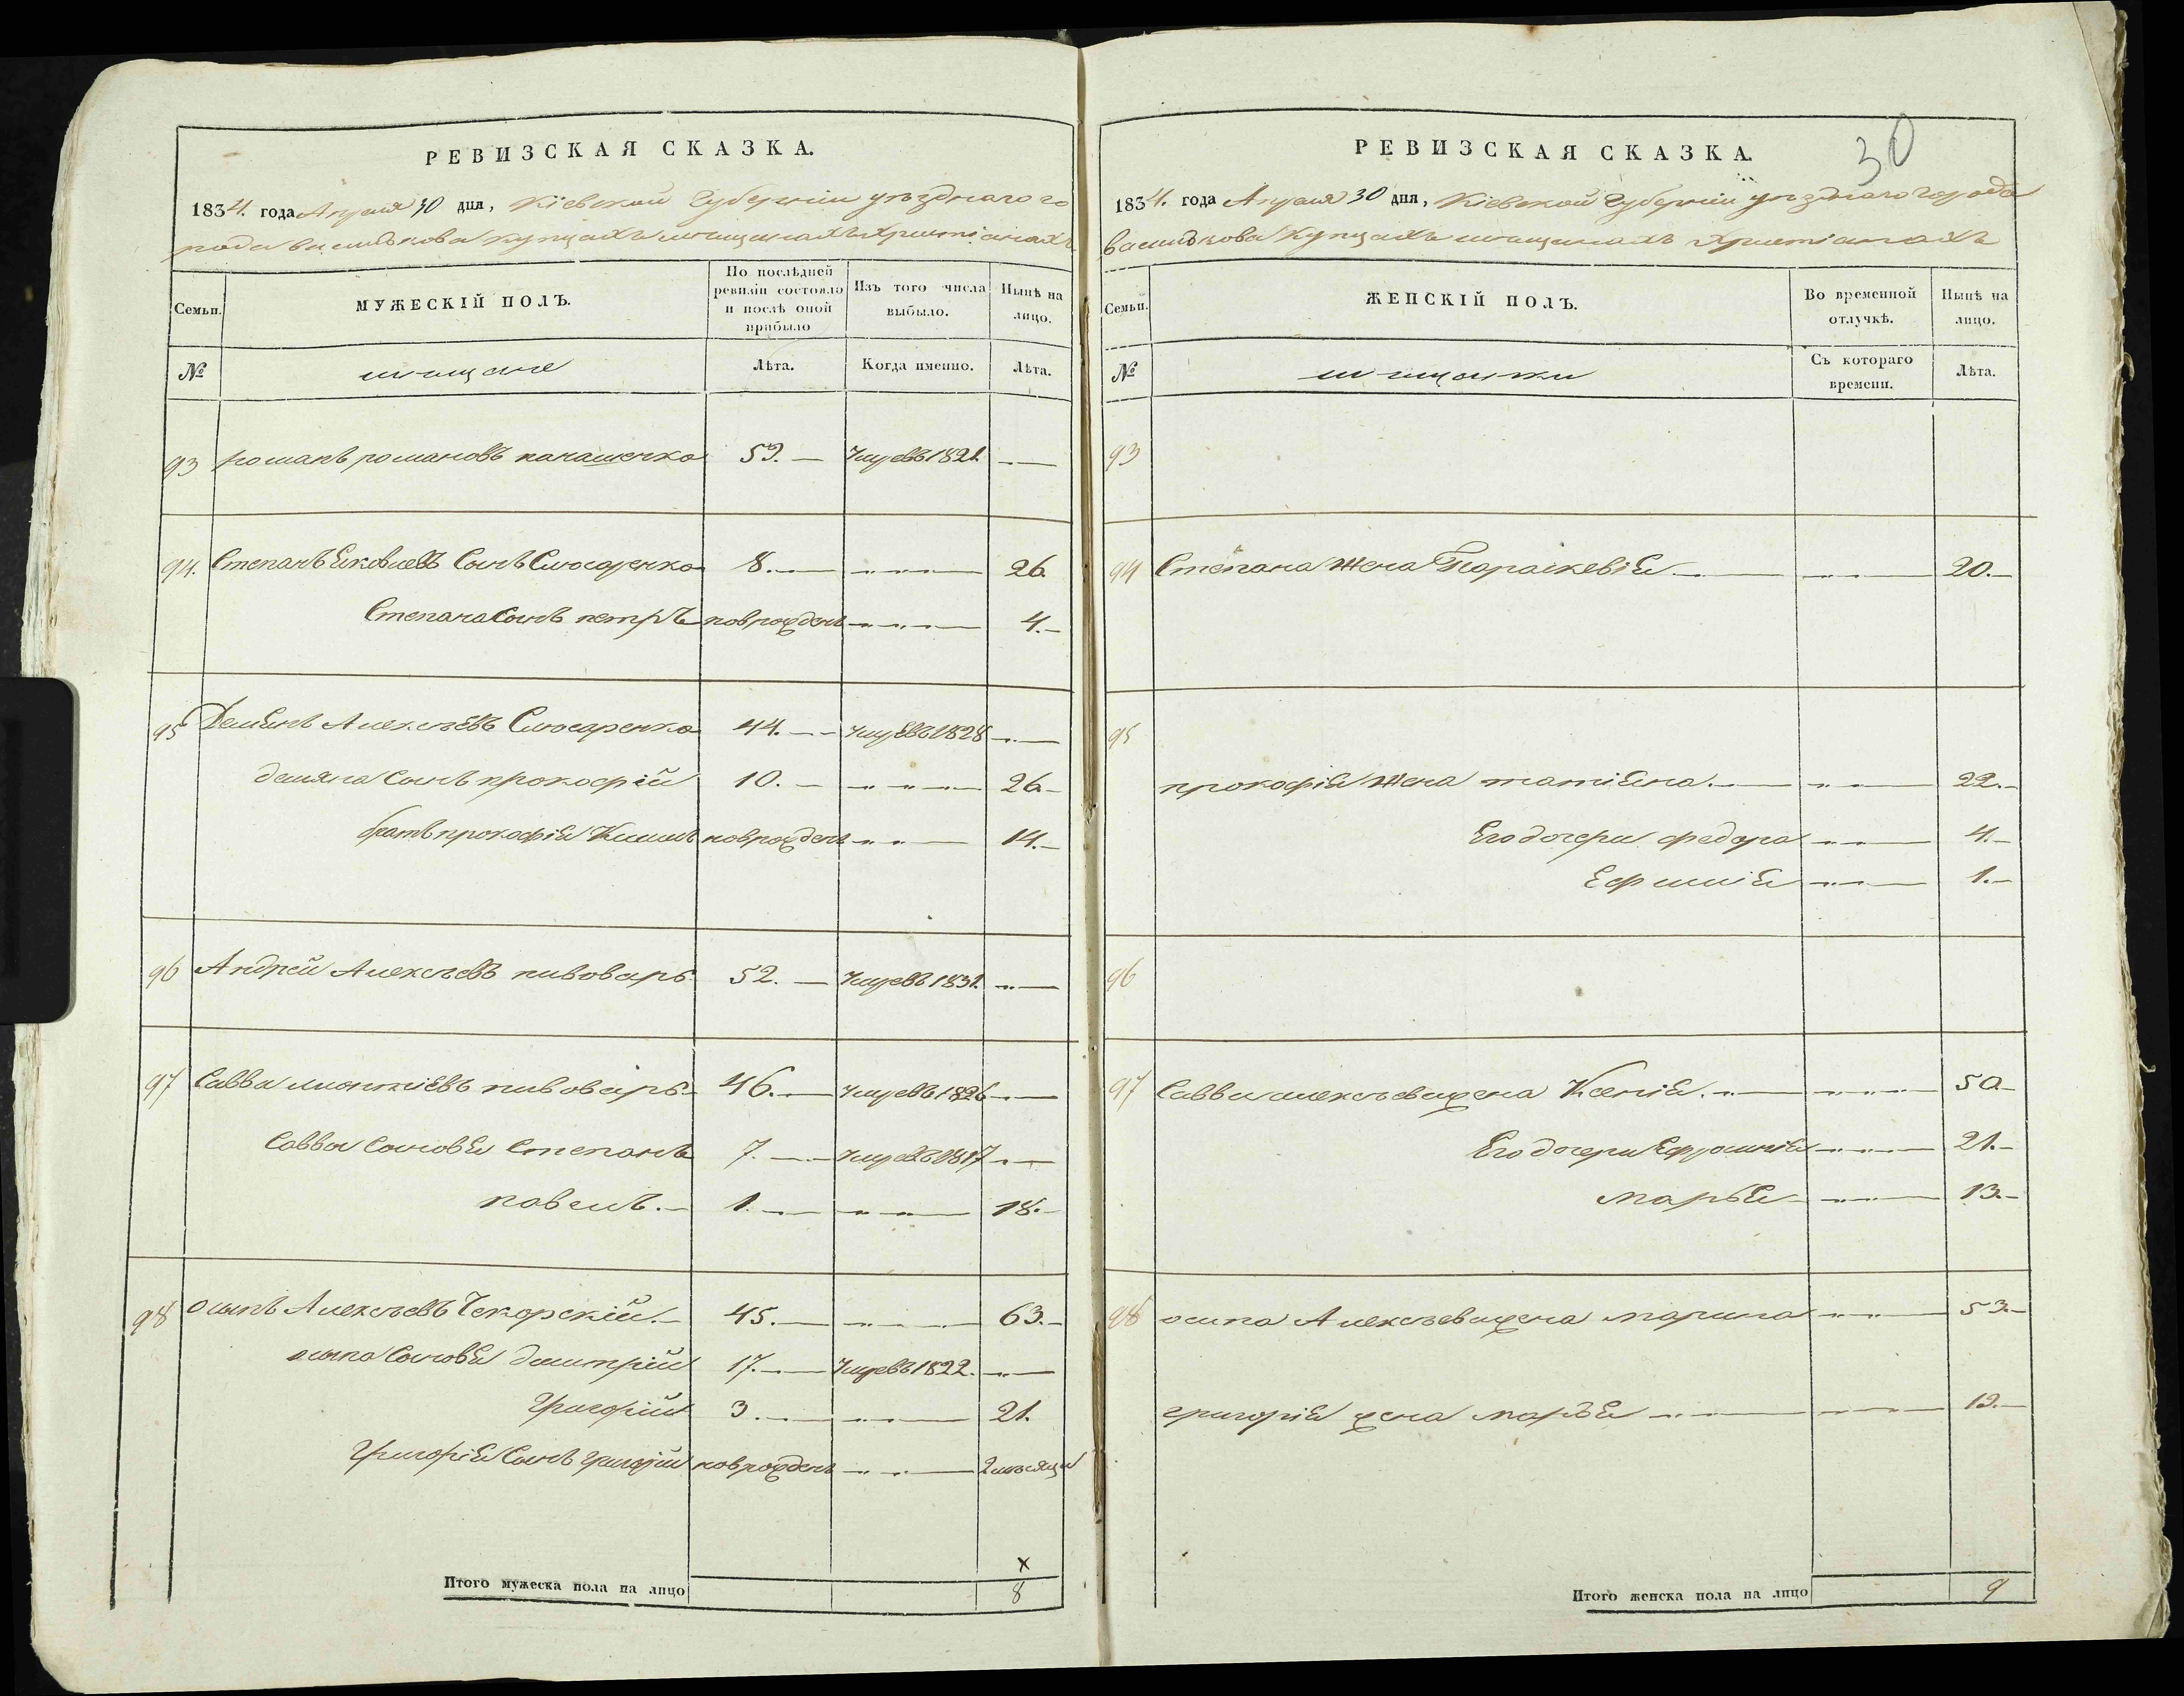 РЕВИЗСКАЯ СКАЗКА.
1834. года Апреля 30 дня, Кіевской Губерніи уѣзднаго го
рода василькова купцахъ мещанахъ христіанахъ
Семьи. МУЖЕСКІЙ ПОЛЪ. По послѣдней ревизіи состояло и послѣ оной прибыло Изъ того числа выбыло. Нынѣ на лицо.
№ мещане Лѣта. Когда именно. Лѣта.
93 романъ романовъ 53. — Умре въ 1821. —
94. Степанъ Яковлевъ Сынъ Слюсаренко 8. — — 26.
Степана Сынъ петръ новрожденъ — 4. —
95 Демянъ Алексѣевъ Слюсаренко 44. — Умре въ 1828 —
демяна Сынъ прокофій 10. — — 26 —
братъ прокофія новрожденъ — 14. —
96 Андрей Алексѣевъ пивоваръ 52. — Умре въ 1831. —
97 Савва пивоваръ 46. — Умре въ 1826 —
Саввы Сыновья Степанъ 7. — Умре въ 1817 —
павелъ. — 1. — — 18. —
98 осипъ Алексѣевъ Чекорскій. — 45. — — 63. —
осипа Сыновья дмитрій 17. — Умре въ 1822. —
Григорій 3. — — 21.
Григорія Сынъ григорій новрожденъ — 2 мѣсяца
×
Итого мужеска пола на лицо 8
30
РЕВИЗСКАЯ СКАЗКА.
1834. года Апреля 30 дня, Кіевской Губерніи уѣзднаго города
василькова Купцахъ мещанахъ христіанахъ
Семьи. ЖЕНСКІЙ ПОЛЪ. Во временной отлучкѣ. Нынѣ на лицо.
№ мещанки Съ котораго времени. Лѣта.
93
94 Степана жена Параскевія — — 20. —
95
прокофія жена татіяна. — — 22. —
Его дочери федора — 4. —
Ефимія — 1. —
96
97 Саввы алексѣева жена Ксенія. — — 50 —
Его дочери Ефросинія — 21. —
марья — — 13. —
98 осипа Алексѣева жена марина — 53. —
григорія жена марья — — 19. —
Итого женска пола на лицо 9